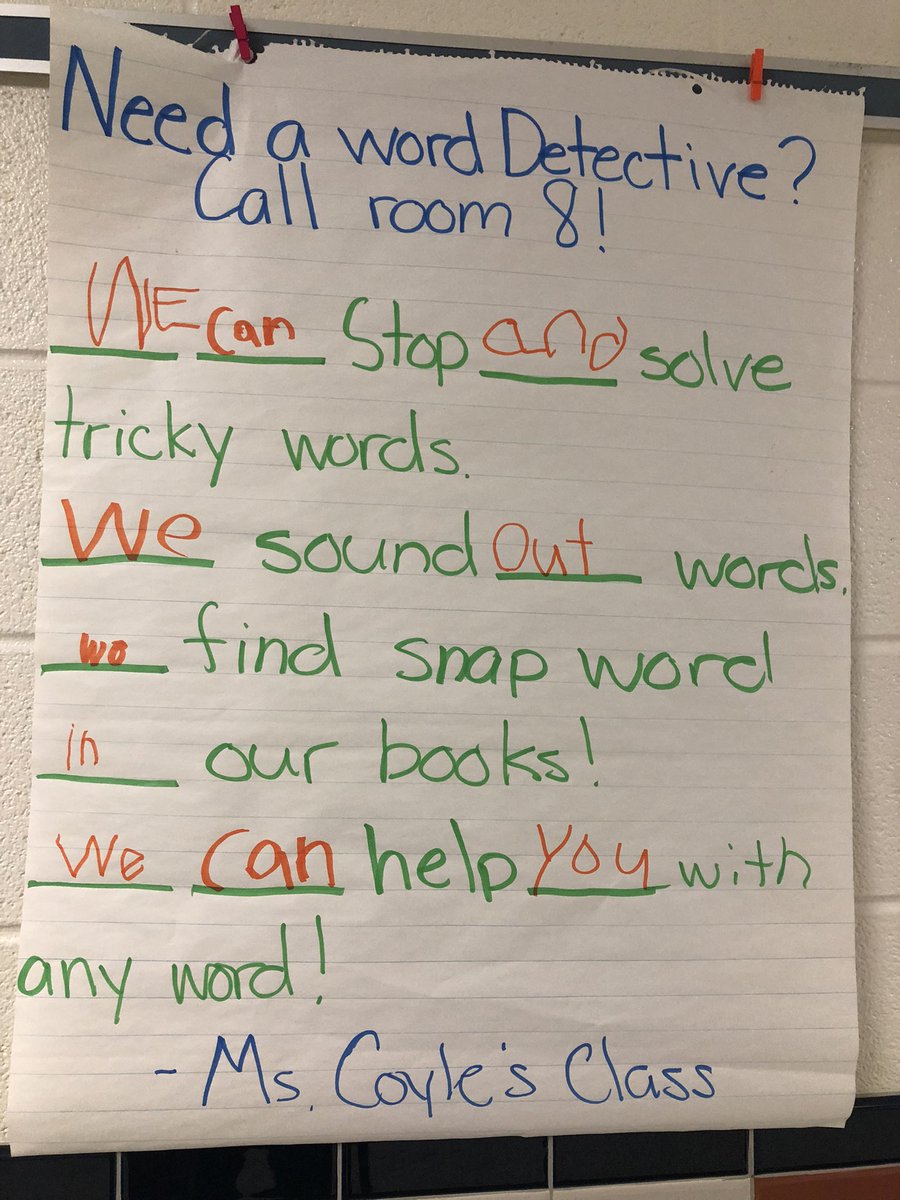 Need a word Detective?
Call room 8!
WE can Stop and solve
tricky words.
We sound Out words.
we find snap word
in our books!
We can help you with
any word!
- Ms. Coyle's Class